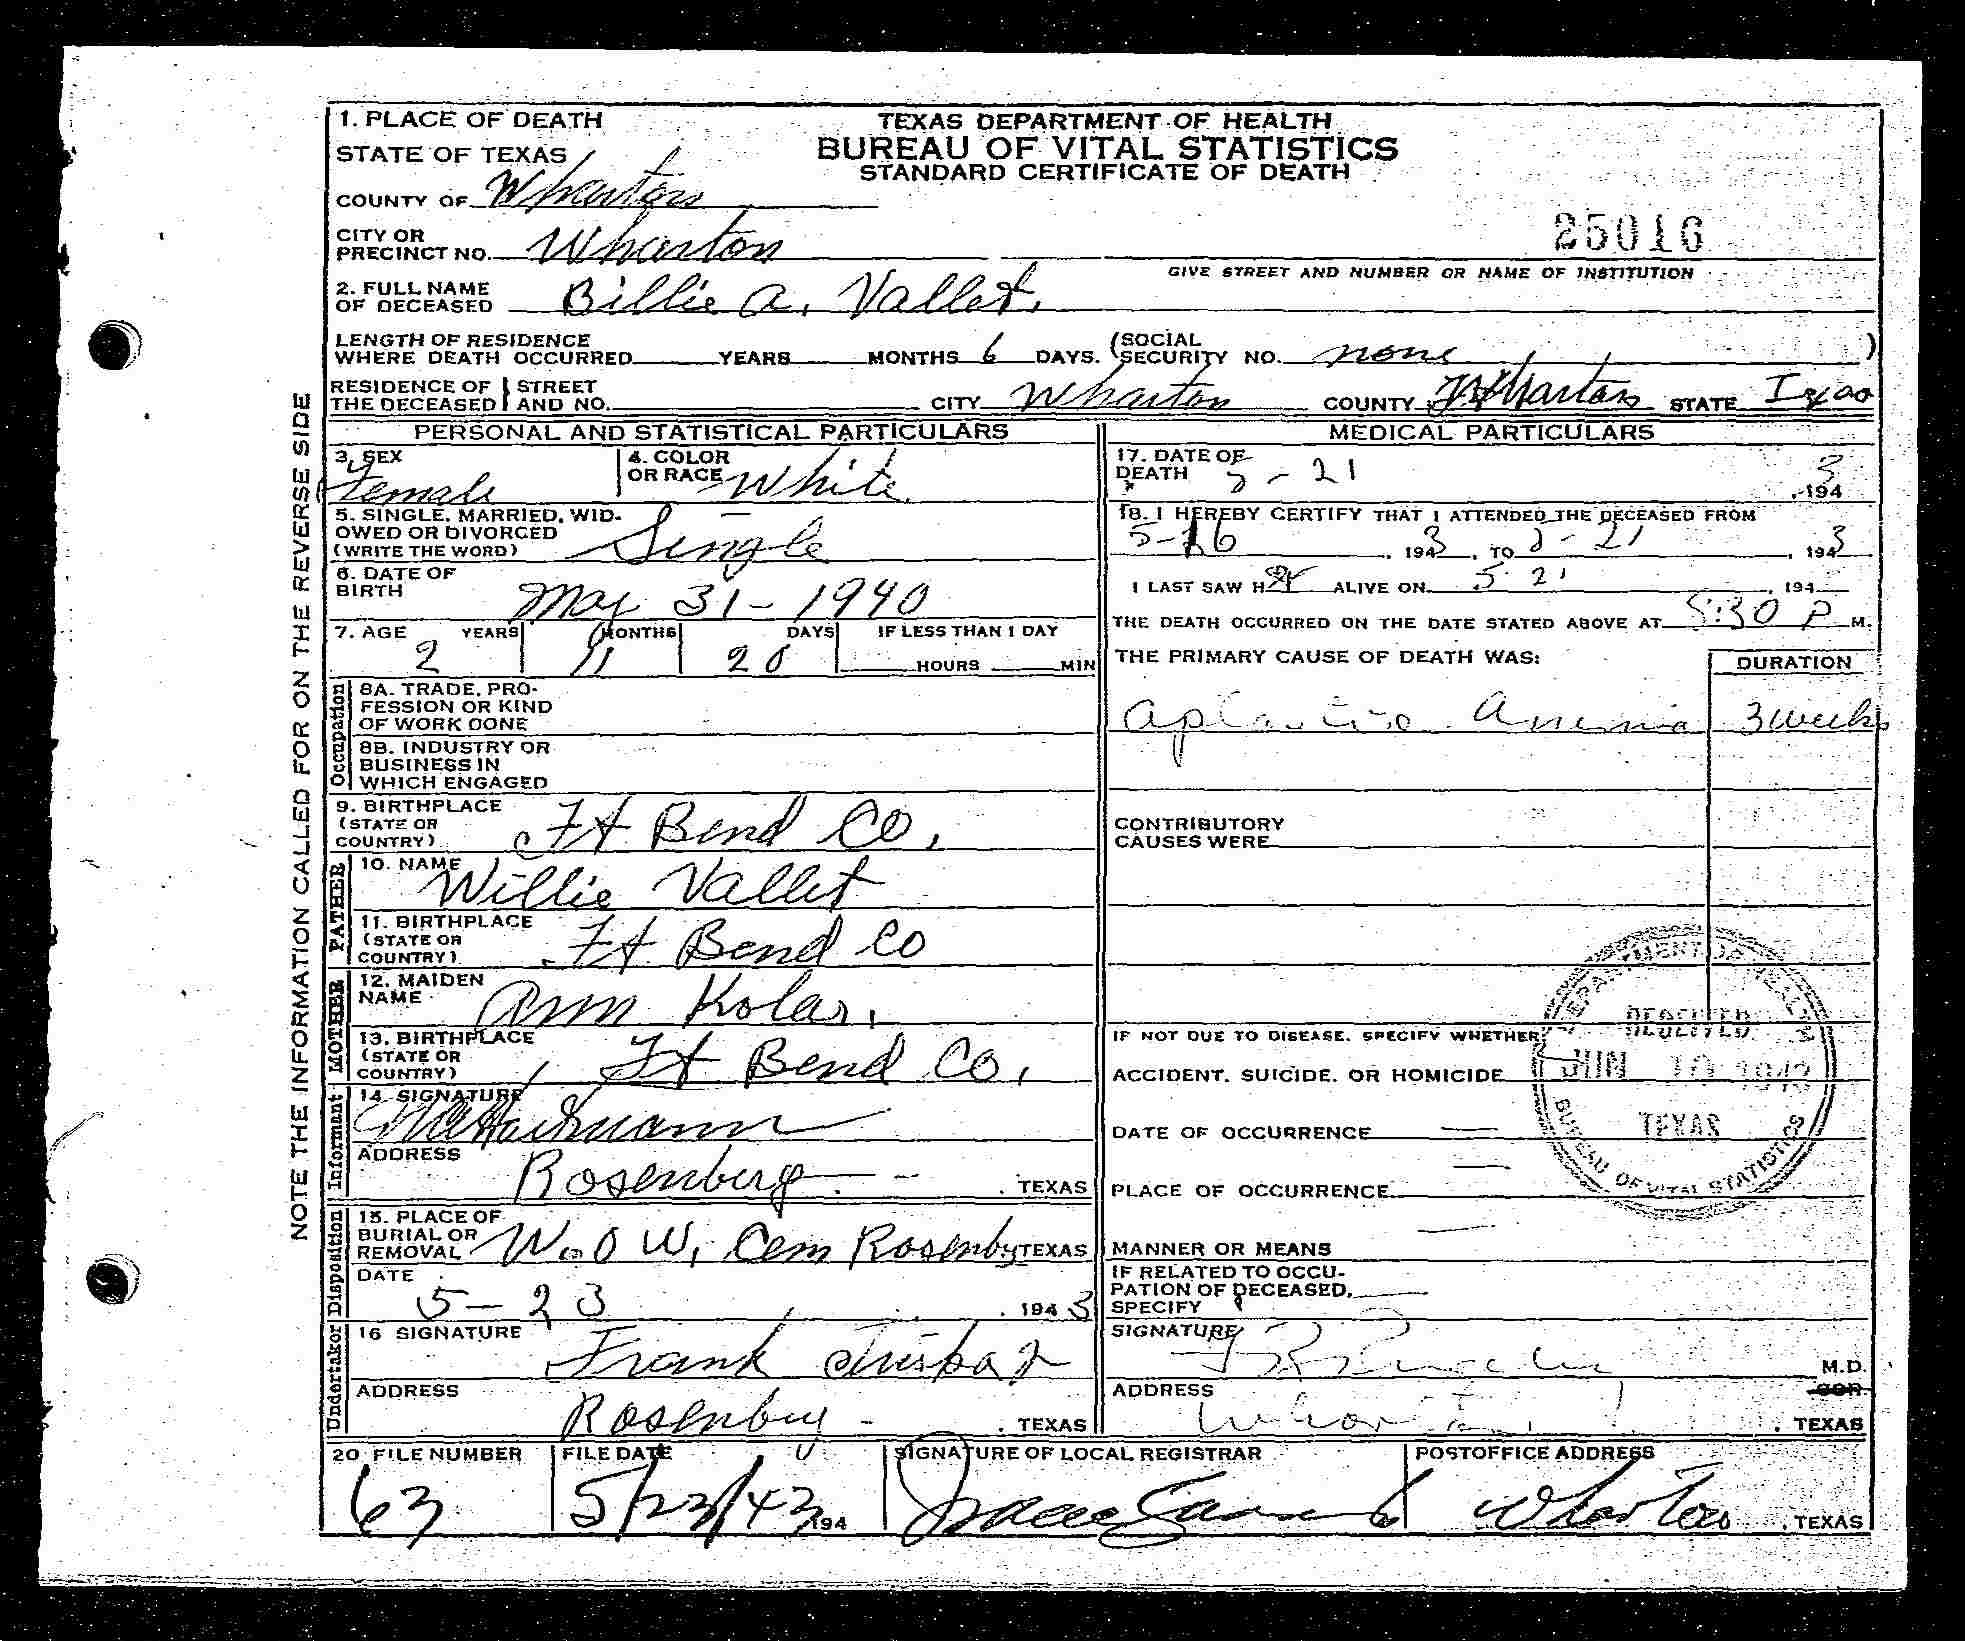 1. PLACE OF DEATH
STATE OF TEXAS
COUNTY OF Wharton
CITY OR
PRECINCT NO. Wharton
TEXAS DEPARTMENT OF HEALTH
BUREAU OF VITAL STATISTICS
STANDARD CERTIFICATE OF DEATH
25016
GIVE STREET AND NUMBER OR NAME OF INSTITUTION
2. FULL NAME
OF DECEASED Billie A. Vallet.
LENGTH OF RESIDENCE
WHERE DEATH OCCURRED YEARS MONTHS 6 DAYS. (SOCIAL
SECURITY NO. none )
RESIDENCE OF THE DECEASED STREET AND NO. CITY Wharton COUNTY Wharton STATE Texas
NOTE THE INFORMATION CALLED FOR ON THE REVERSE SIDE
PERSONAL AND STATISTICAL PARTICULARS
3. SEX
Female
4. COLOR
OR RACE White
5. SINGLE, MARRIED, WID-
OWED OR DIVORCED
(WRITE THE WORD) Single
6. DATE OF
BIRTH May 31 - 1940
7. AGE YEARS MONTHS DAYS IF LESS THAN 1 DAY
2 11 20 HOURS MIN
Occupation
8A. TRADE, PRO-
FESSION OR KIND
OF WORK DONE
8B. INDUSTRY OR
BUSINESS IN
WHICH ENGAGED
9. BIRTHPLACE
(STATE OR
COUNTRY) Ft Bend Co.
FATHER
10. NAME
Willie Vallet
11. BIRTHPLACE
(STATE OR
COUNTRY) Ft Bend Co
MOTHER
12. MAIDEN
NAME Ann Kolar.
13. BIRTHPLACE
(STATE OR
COUNTRY) Ft Bend Co.
Informant
14. SIGNATURE
ADDRESS
Rosenberg , TEXAS
Disposition
15. PLACE OF
BURIAL OR
REMOVAL W.O.W. Cem Rosenberg TEXAS
DATE
5-23 , 1943
Undertaker
16 SIGNATURE
Frank
ADDRESS
Rosenberg - , TEXAS
MEDICAL PARTICULARS
17. DATE OF
DEATH 5-21 , 1943
18. I HEREBY CERTIFY THAT I ATTENDED THE DECEASED FROM
5-16 , 1943, TO 5-21 , 1943
I LAST SAW HER ALIVE ON 5 21 , 194
THE DEATH OCCURRED ON THE DATE STATED ABOVE AT 5:30 P M.
THE PRIMARY CAUSE OF DEATH WAS: DURATION
Aplastic Anemia 3 weeks
CONTRIBUTORY
CAUSES WERE
IF NOT DUE TO DISEASE, SPECIFY WHETHER
ACCIDENT, SUICIDE, OR HOMICIDE
DATE OF OCCURRENCE
PLACE OF OCCURRENCE
MANNER OR MEANS
IF RELATED TO OCCU-
PATION OF DECEASED,
SPECIFY
SIGNATURE
M.D.
COR.
ADDRESS
Wharton , TEXAS
DEPARTMENT OF HEALTH
RECEIVED
JUN 10 1943
TEXAS
BUREAU OF VITAL STATISTICS
20 FILE NUMBER FILE DATE SIGNATURE OF LOCAL REGISTRAR POSTOFFICE ADDRESS
63 5/23/43 194 Wharton , TEXAS